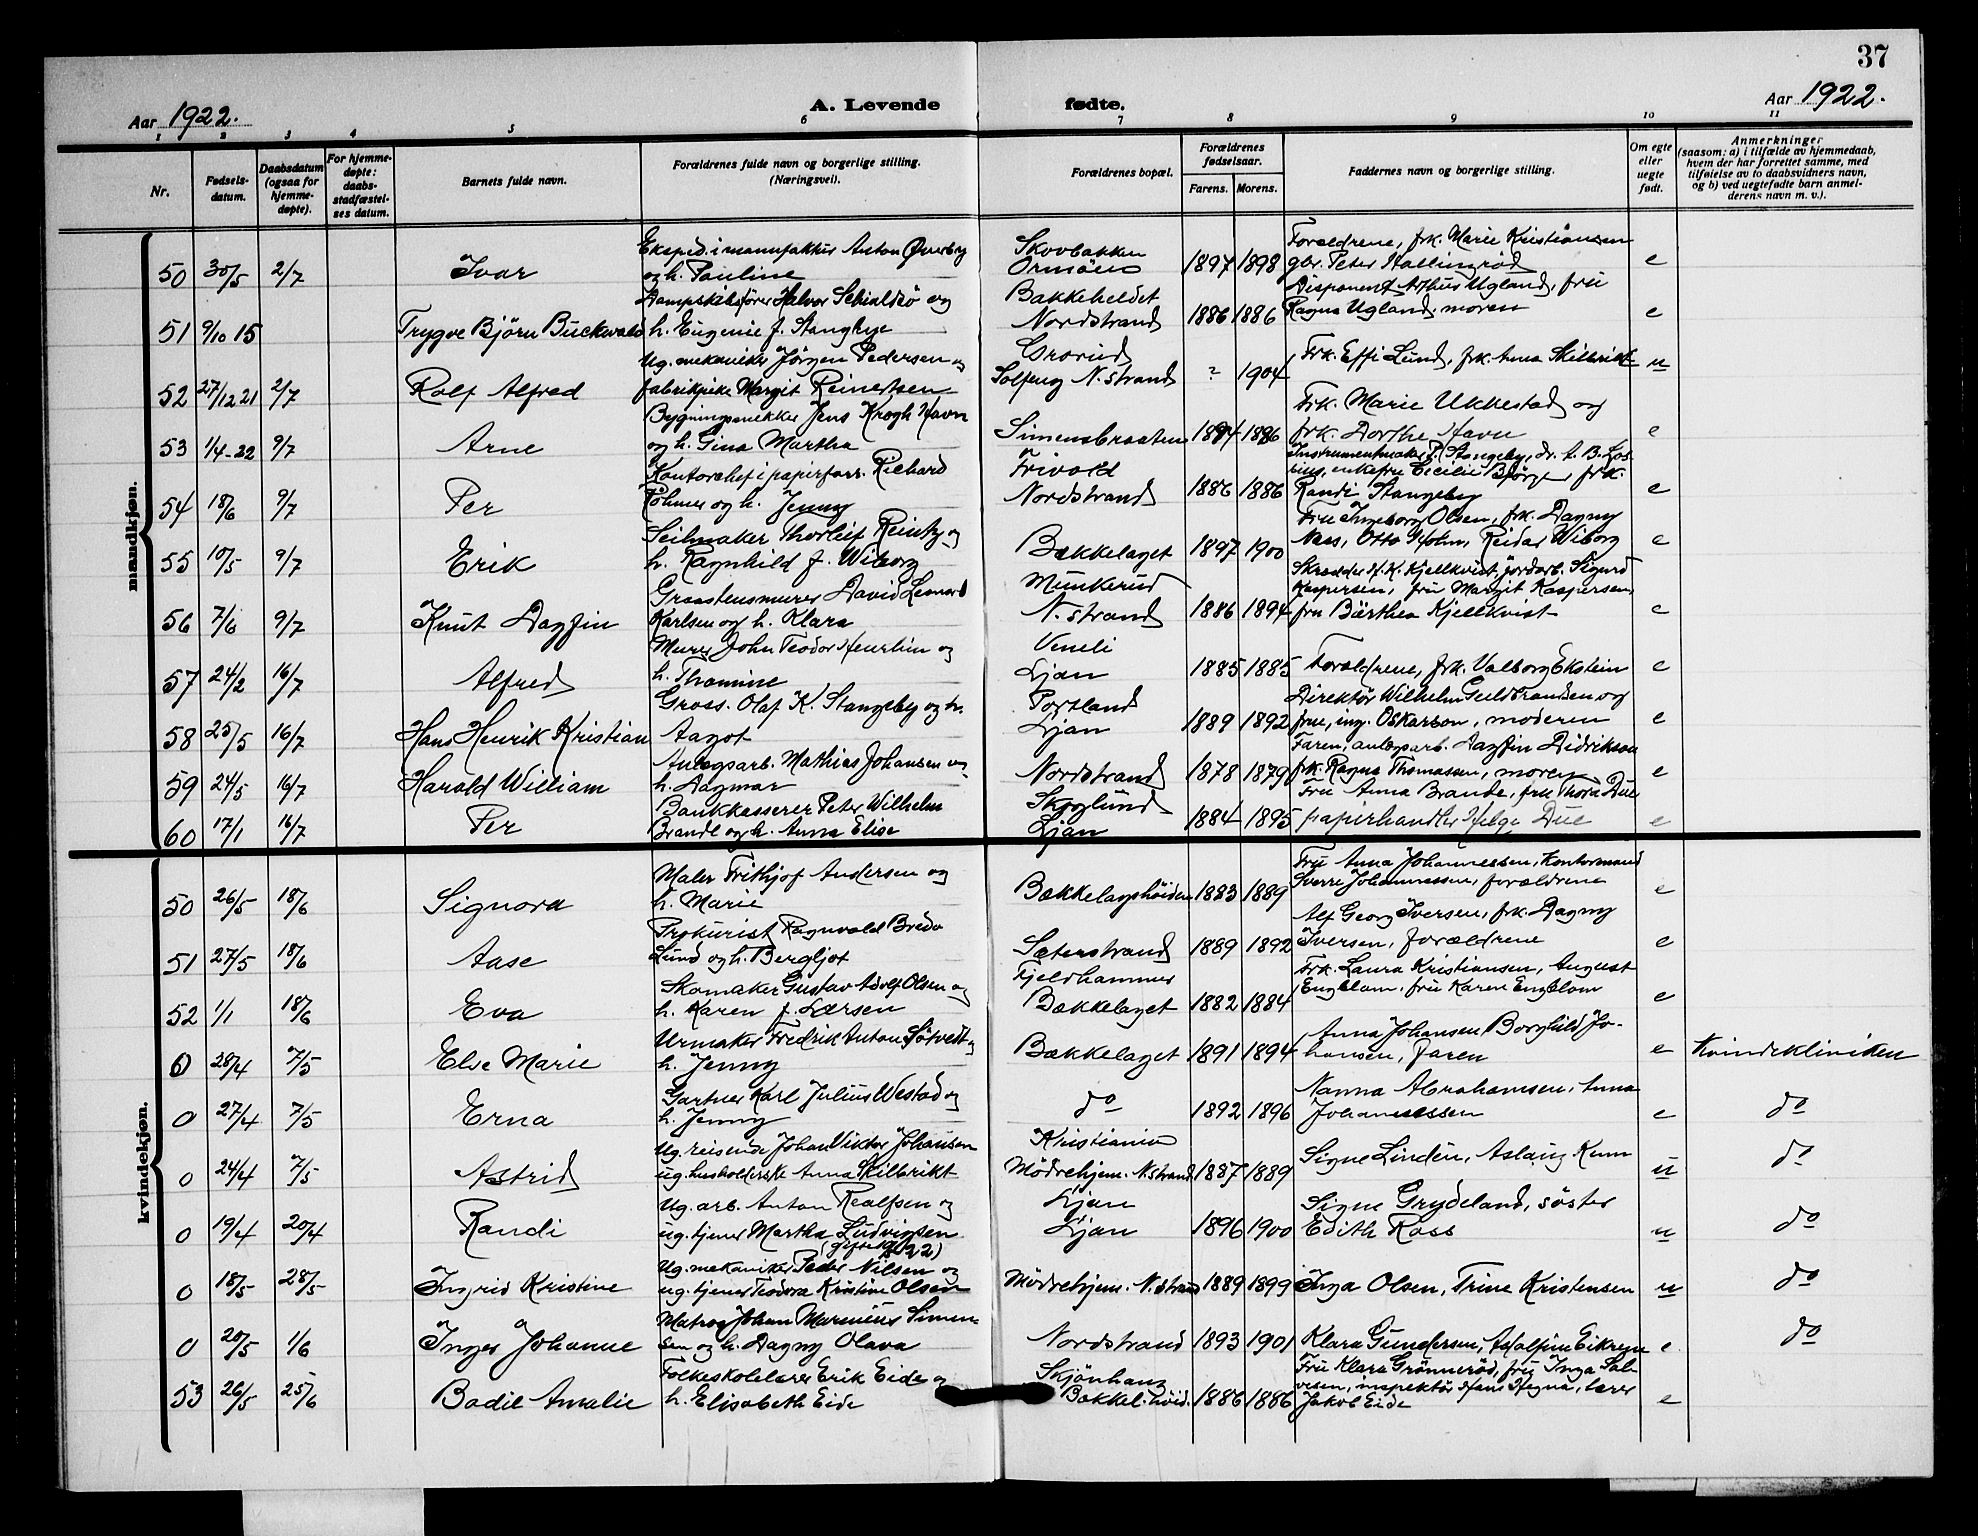 37
Aar 1922. A. Levende fødte. Aar 1922.
1 2 3 4 5 6 7 8 9 10 11
Nr.
Fødsels-
datum.
Daabsdatum
(ogsaa for
hjemme-
døpte).
For hjemme-
døpte:
daabs-
stadfæstel-
ses datum.
Barnets fulde navn.
Forældrenes fulde navn og borgerlige stilling.
(Næringsvei).
Forældrenes bopæl.
Forældrenes
fødselsaar.
Farens. Morens.
Faddernes navn og borgerlige stilling.
Om egte
eller
uegte
født.
Anmerkninger
(saasom: a) i tilfælde av hjemmedaab,
hvem der har forrettet samme, med
tilføielse av to daabsvidners navn,
og b) ved uegtefødte barn anmel-
derens navn m. v.).
mandkjøn.
Eksped. i manufaktur Anton Øverby Skovbakken Forældrene, frk. Marie Kristiansen
50 30/5 2/7 Ivar og h. Pauline Ormöen 1897 1898 gbr. Peter Stallingröd e
Dampskibsfører Halvor Schialdsö og Bakkeheldet Disponent Arthur Ugland, fru
51 9/10 15 Trygve Björn Buckwald h. Eugenie f. Stanghye Nordstrand 1886 1886 Ragna Ugland, moren e
Ug. mekaniker Jörgen Pedersen og Grorud Frk. Effi Lund, frk. Anna Skilbrikt
52 27/12 21 2/7 Rolf Alfred fabrikpike Margit Reinertsen Solfeng N.strand ? 1904 u
Bygningssnekker Jens Krogh Havn Frk. Marie Ukkestad og
53 1/4-22 9/7 Arne og h. Gina Martha Simensbraaten 1884 1886 frk. Dorthe Havn e
Kontorchef i papirforr. Richard Frivold Instrumentmaker P. Stangeby, dr. h. B. Los-
54 18/6 9/7 Per Röhmer og h. Jenny Nordstrand 1886 1886 rius, enkefru Cecilie Björge, frk.
Randi Stangeby e
Seilmaker Thorleif Reintz og Fru Ingeborg Olsen, frk. Dagny
55 10/5 9/7 Erik h. Ragnhild f. Wiborg Bækkelaget 1897 1900 Næss, Otto Holm, Reidar Wiborg e
Graastensmurer David Leonard Munkerud Skrædder H. K. Kjellkvist, jordarb. Sigurd
Kaspersen, fru Margit Kaspersen,
56 7/6 9/7 Knut Dagfin Karlsen og h. Klara N.strand 1886 1894 fru Bärthea Kjellkvist e
Murer John Teodor Heurlin og Veneli
57 24/2 16/7 Alfred h. Thomine Ljan 1885 1885 Forældrene, frk. Valborg Ekstein e
Gross. Olaf K. Stangeby og h. Portland Direktör Wilhelm Guldbrandsen og
58 25/5 16/7 Hans Henrik Kristian Aagot Ljan 1889 1892 frue, ing. Oskarson, moderen e
Anlægsarb. Mathias Johansen og Faren, anlægsarb. Dagfin Didriksen
59 24/5 16/7 Harald William h. Dagmar Nordstrand 1878 1879 frk. Ragna Thomassen, moren e
Bankkasserer Peter Wilhelm Skoglund Fru Anna Brande, fru Thora Due
60 17/1 16/7 Per Brande og h. Anna Elise Ljan 1884 1895 papirhandler Helge Due e
kvindekjøn.
Maler Frithjof Andersen og Fru Anna Johannessen, kontormand
50 26/5 18/6 Signora h. Marie Bækkelagshöiden 1883 1889 Sverre Johannessen, forældrene e
Prokurist Ragnvald Bredo Alf Georg Iversen, frk. Dagny
51 27/5 18/6 Aase Lund og h. Bergljot Sæterstrand 1889 1892 Iversen, forældrene e
Skomaker Gustav Adolf Olsen og Fjeldhammer Frk. Laura Kristiansen, August
52 1/1 18/6 Eva h. Karen f. Larsen Bækkelaget 1882 1884 Engblom, fru Karen Engblom e
Urmaker Fredrik Anton Sötvedt og Anna Johansen Borghild Jo-
0 28/4 7/5 Else Marie h. Jenny Bækkelaget 1891 1894 hansen, faren e Kvindekliniken
Gartner Karl Julius Westad og Nanna Abrahamsen, Anna
0 27/4 7/5 Erna h. Jenny do 1892 1896 Johannessen e do
Ug. reisende Johan Viktor Johansen Kristiania
0 24/4 7/5 Astrid ug. husholderske Anna Skilbrikt Mödrehjem. N.strand 1887 1889 Signe Linden, Aslaug Kum u do
Ug. arb. Anton Realfsen og Ljan Signe Grydeland, söster
0 19/4 20/4 Randi ug. tjener Martha Ludvigsen Ljan 1896 1900 Edith Ross u do
Ug. mekaniker Peder Nilsen og
0 18/5 28/5 Ingrid Kristine ug. tjener Teodora Kristine Olsen Mödrehjem. N.strand 1889 1899 Inga Olsen, Trine Kristensen u do
Matros Johan Marinius Simen-
0 20/5 1/6 Inger Johanne sen og h. Dagny Olava Nordstrand 1893 1901 Klara Gundersen, Adolfine Eikrem e do
Folkeskolelærer Erik Eide og Skjönhaug Fru Klara Grönneröd, fru Inga Sol-
vesen, inspektör Hans Hegna, lærer
53 26/5 25/6 Bodil Amalie h. Elisabeth Eide Bækkel. höid. 1886 1886 Jakob Eide e